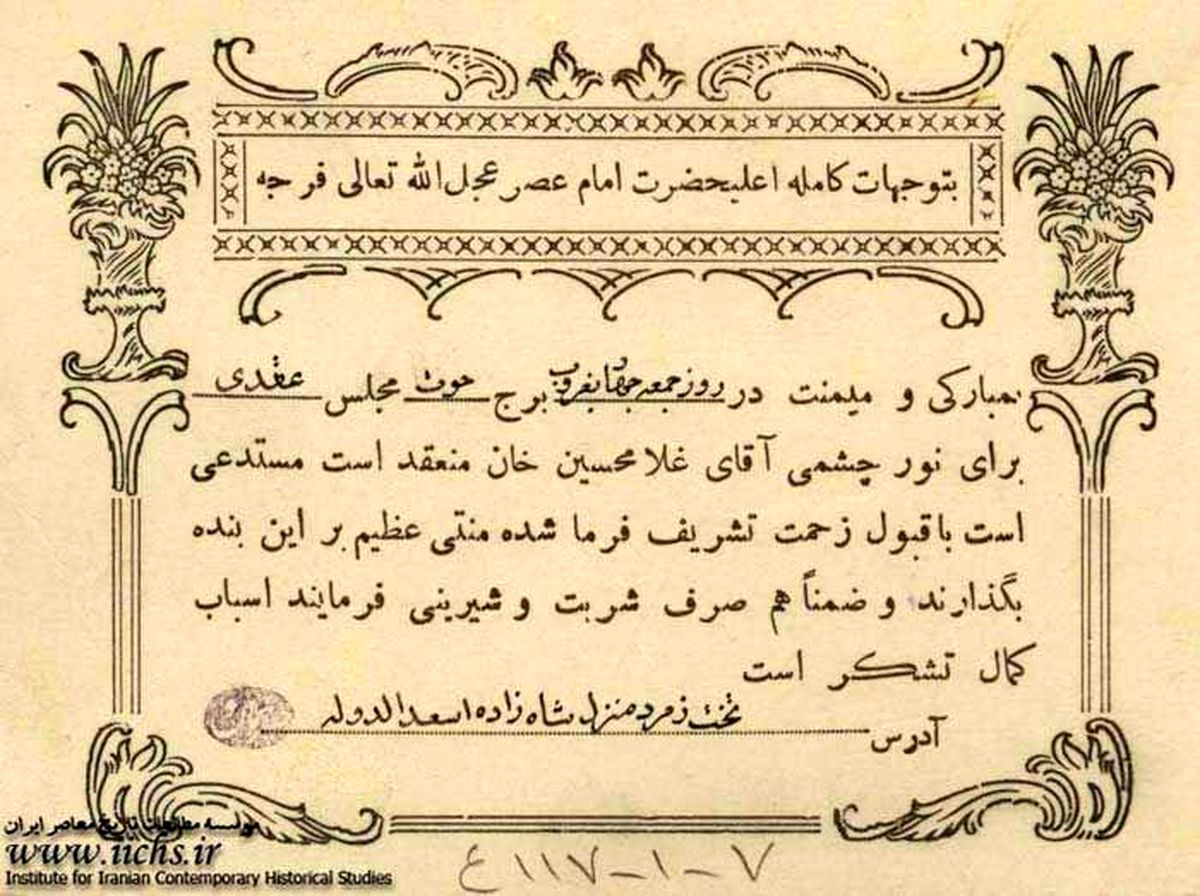 بتوجهات کامله اعلیحضرت امام عصر عجل الله تعالی فرجه
بمبارکی و میمنت در روز جمعه بغروب برج حوت مجلس عقدی
برای نور چشمی آقای غلامحسین خان منعقد است مستدعی
است با قبول زحمت تشریف فرما شده منتی عظیم بر این بنده
بگذارند و ضمناً هم صرف شربت و شیرینی فرمایند اسباب
کمال تشکر است
آدرس تخت زمرد منزل شاه زاده اسعد الدوله
موسسه مطالعات تاریخ معاصر ایران
www.iichs.ir
Institute for Iranian Contemporary Historical Studies
۷-۱-۱۱۷ع